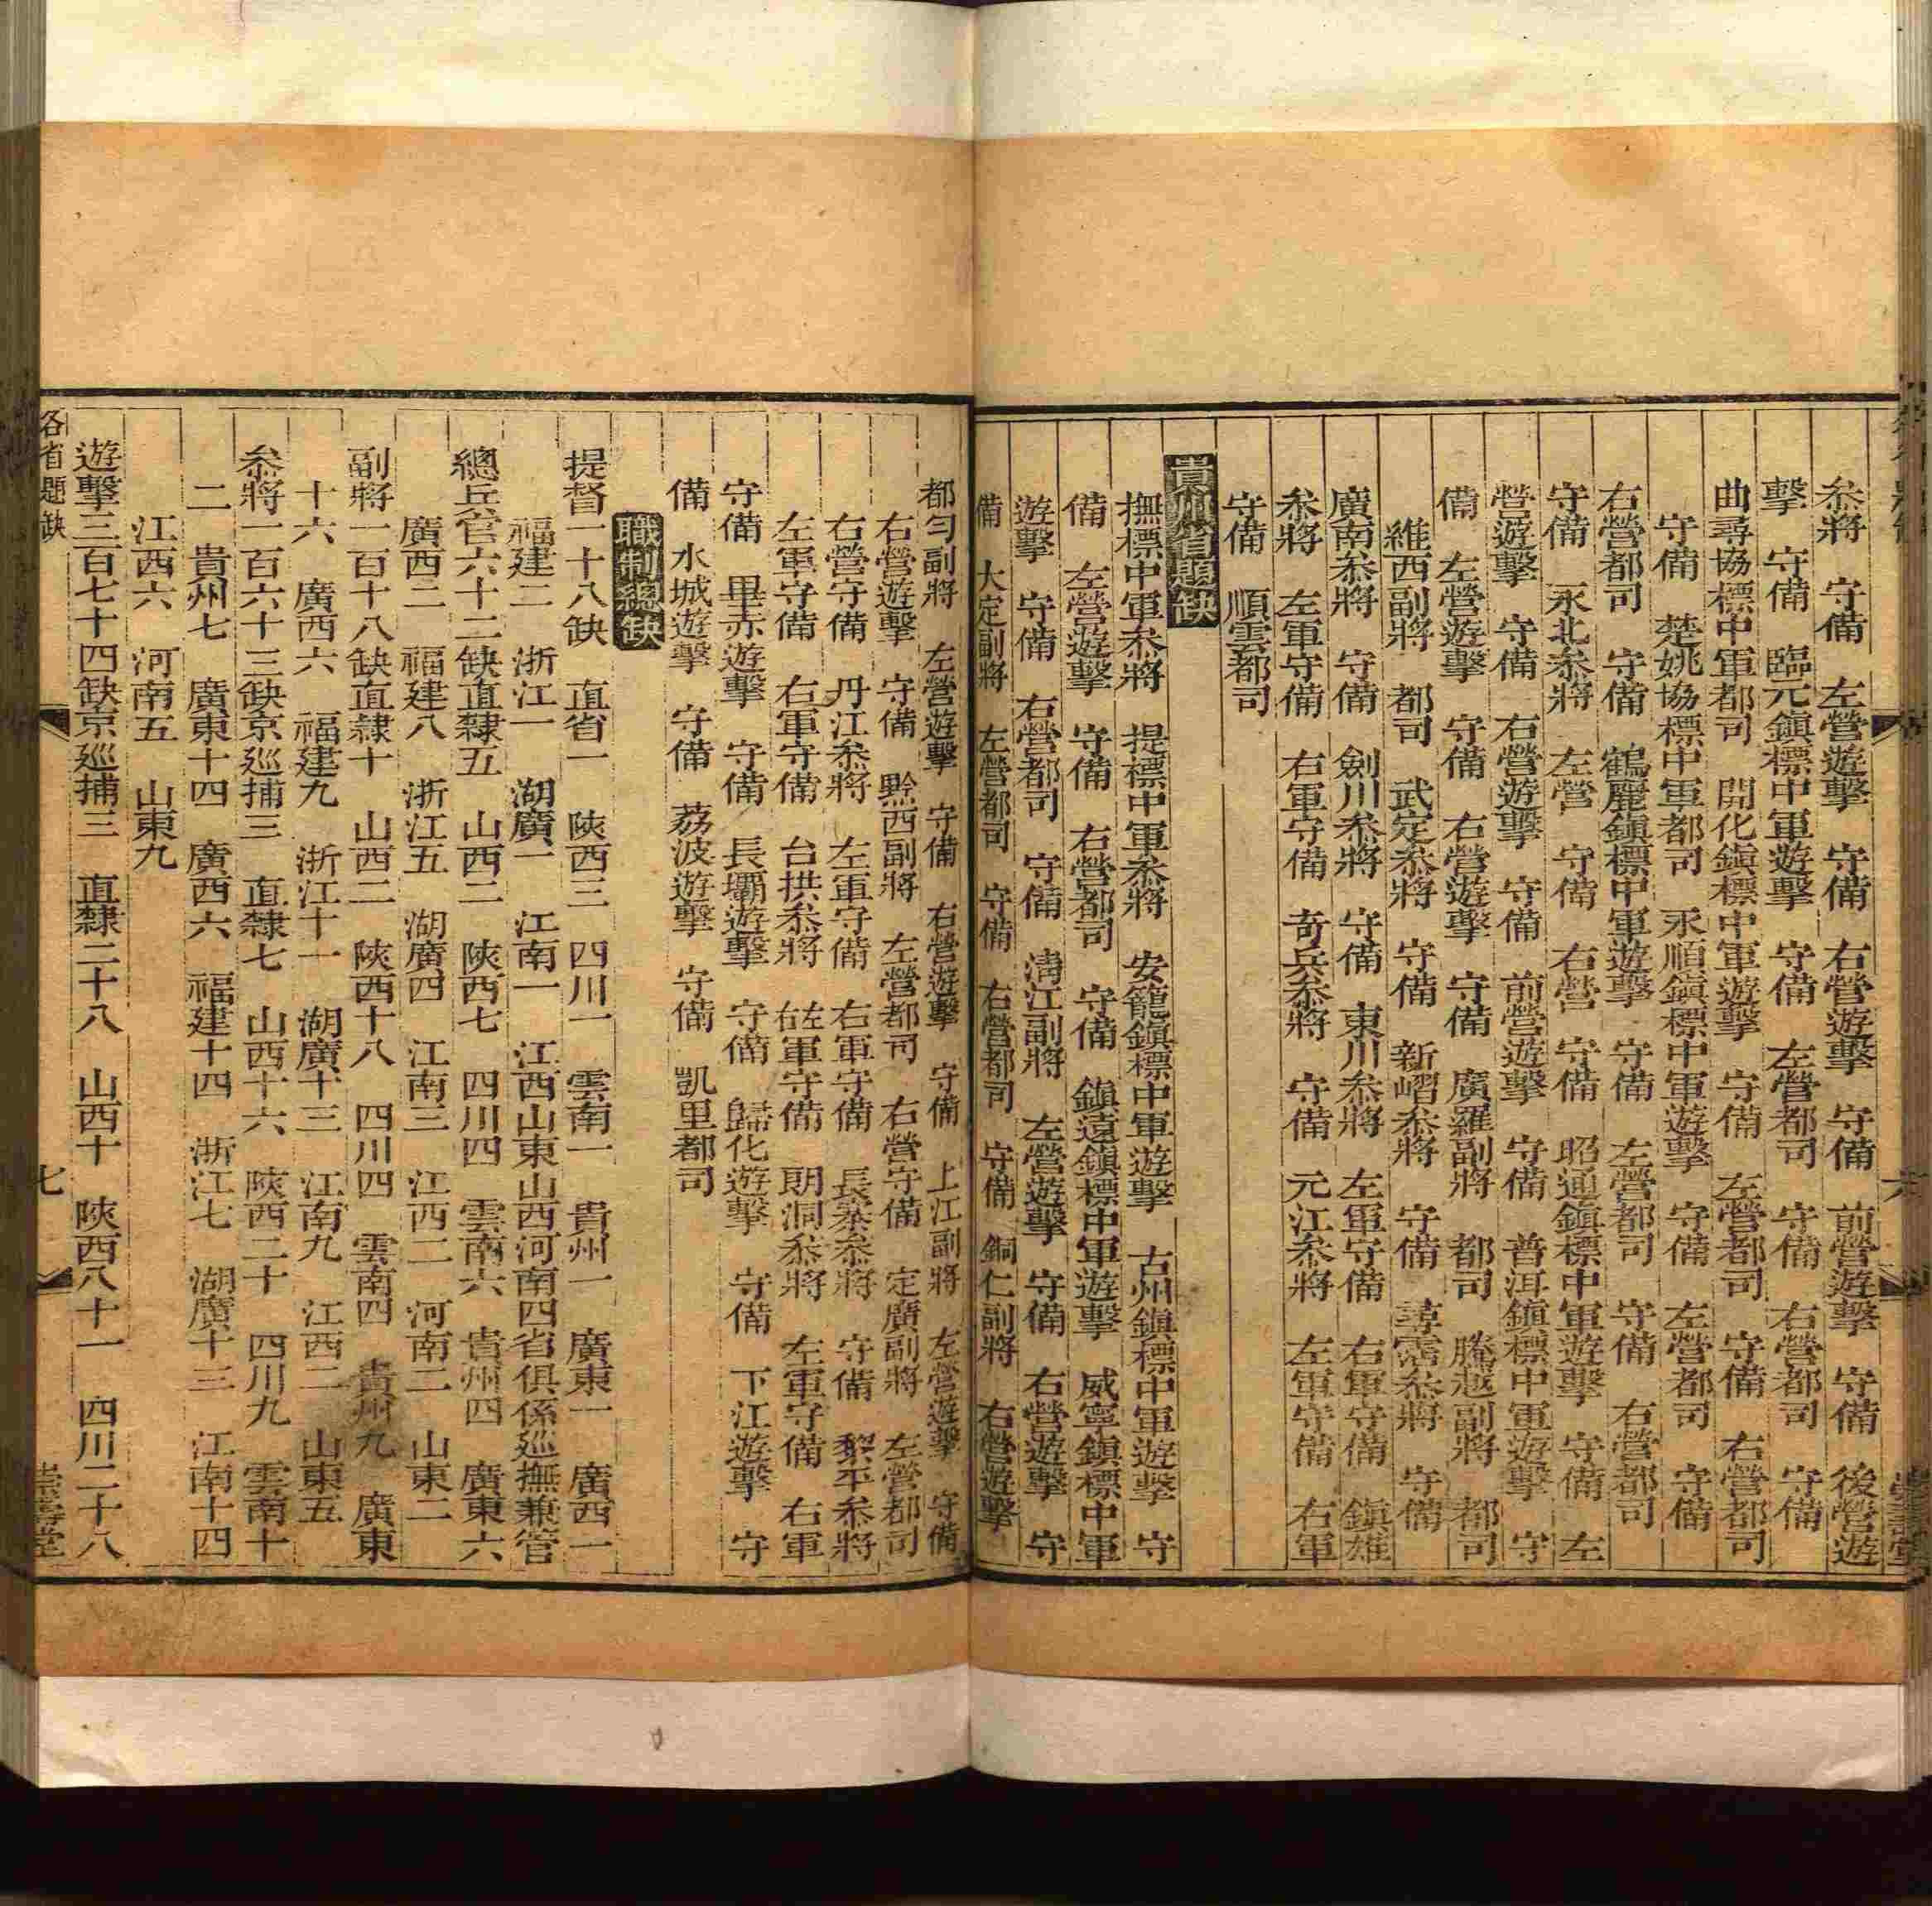 叅將　守備　左營遊擊　守備　右營遊擊　守備　前營遊擊　守備　後營遊
擊　守備　臨元鎮標中軍遊擊　守備　左營都司　守備　右營都司　守備
曲尋協標中軍都司　開化鎮標中軍遊擊　守備　左營都司　守備　右營都司
守備　楚姚協標中軍都司　永順鎮標中軍遊擊　守備　左營都司　守備
右營都司　守備　鶴麗鎮標中軍遊擊　守備　左營都司　守備　右營都司
守備　永北叅將　守備　左營　守備　右營　守備　昭通鎮標中軍遊擊　守備　左
營遊擊　守備　右營遊擊　守備　前營遊擊　守備　普洱鎮標中軍遊擊　守
備　左營遊擊　守備　右營遊擊　守備　廣羅副將　都司　騰越副將　都司
維西副將　都司　武定叅將　守備　新嶍叅將　守備　尋霑叅將　守備
廣南叅將　守備　劍川叅將　守備　東川叅將　左軍守備　右軍守備　鎮雄
叅將　左軍守備　右軍守備　奇兵叅將　守備　元江叅將　左軍守備　右軍
守備　順雲都司
貴州省題缺
撫標中軍叅將　提標中軍叅將　安籠鎮標中軍遊擊　古州鎮標中軍遊擊　守
備　左營遊擊　守備　右營都司　守備　鎮遠鎮標中軍遊擊　威寧鎮標中軍
遊擊　守備　右營都司　守備　清江副將　左營遊擊　守備　右營遊擊　守
備　大定副將　左營都司　守備　右營都司　守備　銅仁副將　右營遊擊
都勻副將　左營遊擊　守備　右營遊擊　守備　上江副將　左營遊擊　守備
右營遊擊　守備　黔西副將　左營都司　右營守備　定廣副將　左營都司
右營守備　丹江叅將　左軍守備　右軍守備　長寨叅將　守備　黎平叅將
左軍守備　右軍守備　台拱叅將　左軍守備　朗洞叅將　左軍守備　右軍
守備　畢赤遊擊　守備　長壩遊擊　守備　歸化遊擊　守備　下江遊擊　守
備　水城遊擊　守備　荔波遊擊　守備　凱里都司
職制總缺
提督一十八缺　直省一　陝西三　四川一　雲南一　貴州一　廣東一　廣西一
福建二　浙江一　湖廣一　江南一　江西山東山西河南四省俱係巡撫兼管
總兵官六十二缺直隸五　山西二　陝西七　四川四　雲南六　貴州四　廣東六
廣西二　福建八　浙江五　湖廣四　江南三　江西二　河南二　山東二
副將一百十八缺直隸十　山西二　陝西十八　四川四　雲南四　貴州九　廣東
十六　廣西六　福建九　浙江十一　湖廣十三　江南九　江西二　山東五
叅將一百六十三缺京巡捕三　直隸七　山西十六　陝西二十　四川九　雲南十
二　貴州七　廣東十四　廣西六　福建十四　浙江七　湖廣十三　江南十四
江西六　河南五　山東九
遊擊三百七十四缺京巡捕三　直隸二十八　山西十　陝西八十一　四川二十八
各省題缺　七　崇壽堂